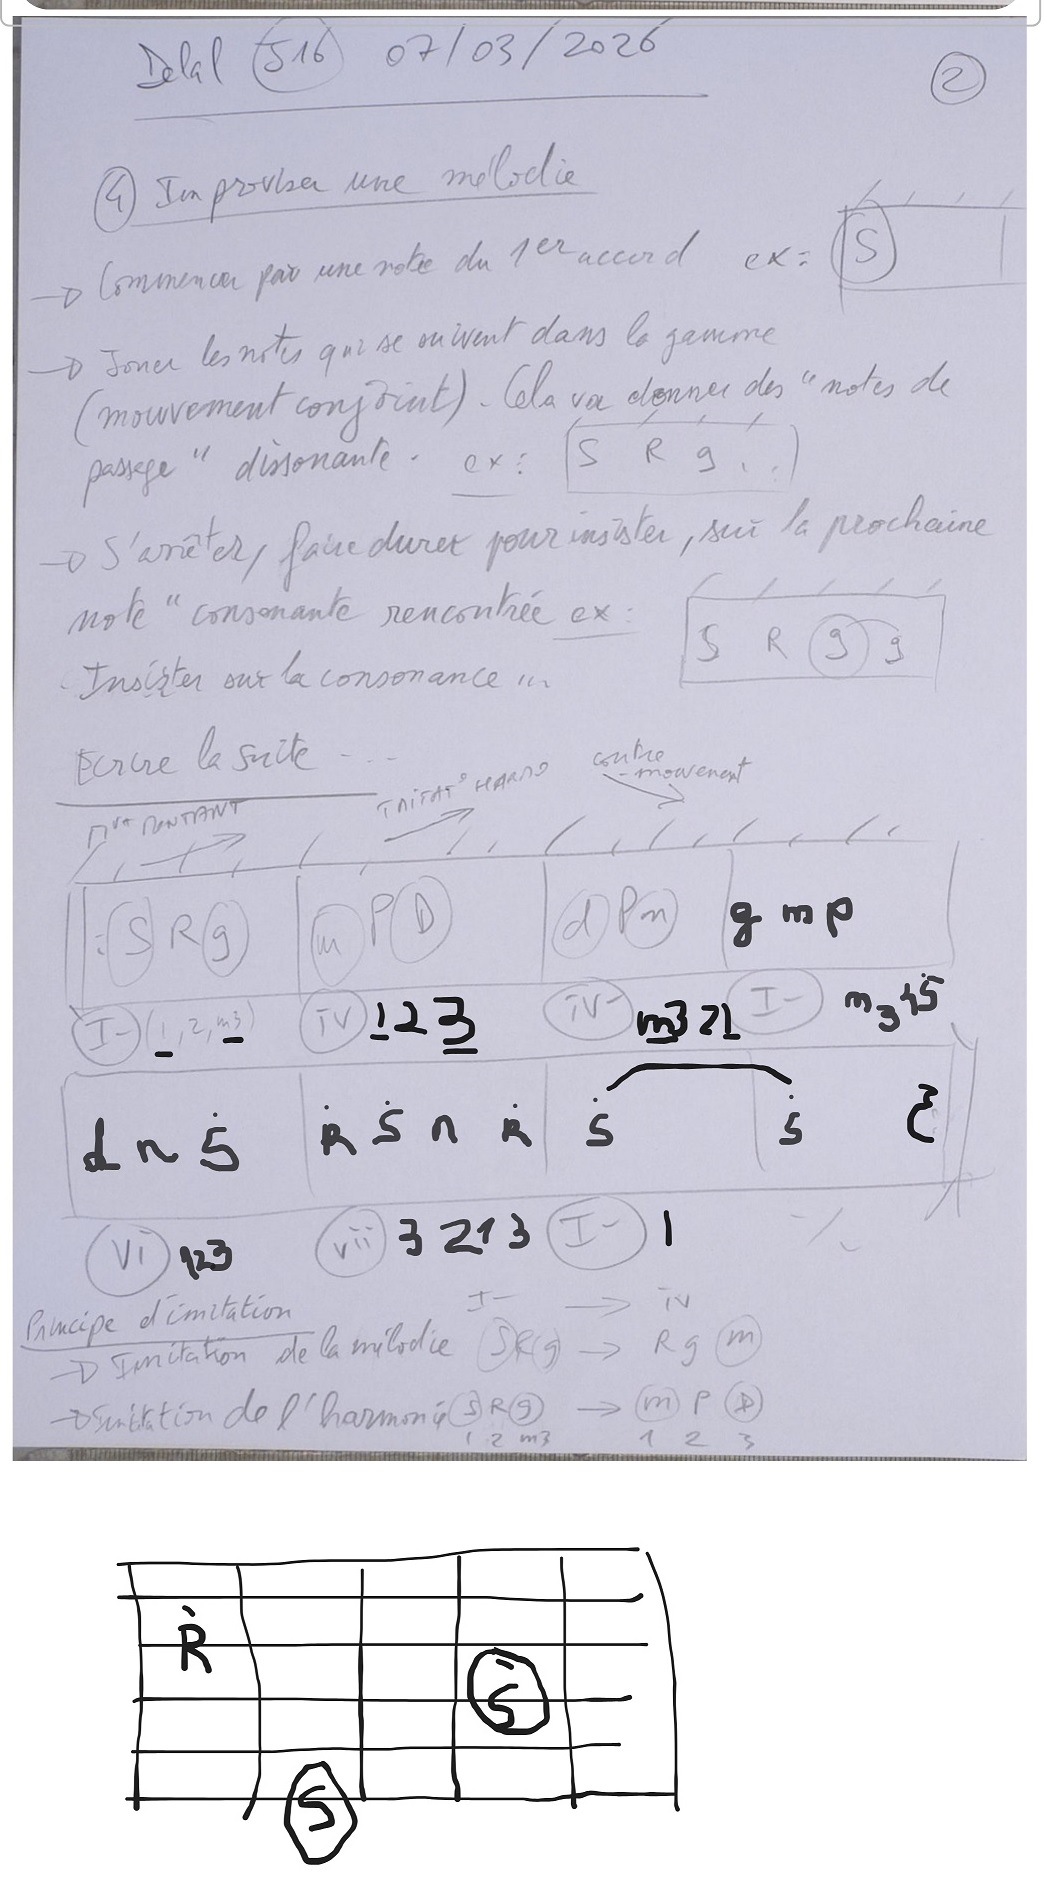 Delal J16 07/03/2026
2
4 Improviser une mélodie
→ Commencer par une note du 1er accord ex: S
→ Jouer les notes qui se suivent dans la gamme
(mouvement conjoint). Cela va donner des "notes de
passage" dissonante. ex: S R g . . .
→ S'arrêter, faire durer pour insister, sur la prochaine
note "consonante rencontrée ex: S R g g
Insister sur la consonance ...
Ecrire la suite ...
Mvt MONTANT IMITAT° HARMO contre-mouvement
:S R g m P D d P n g m p
I- (1, 2, m3) iv 1 2 3 iv- m3 2 1 I- m3 4 5
d n Ṡ Ṙ Ṡ n Ṙ Ṡ Ṡ
vi 123 vii 3 2 1 3 I- 1 ٪
Principe d'imitation I- → iv
→ Imitation de la mélodie S R g → R g m
→ Imitation de l'harmonie S R g → m P D
1 2 m3 1 2 3
Ṙ
Ṡ
S